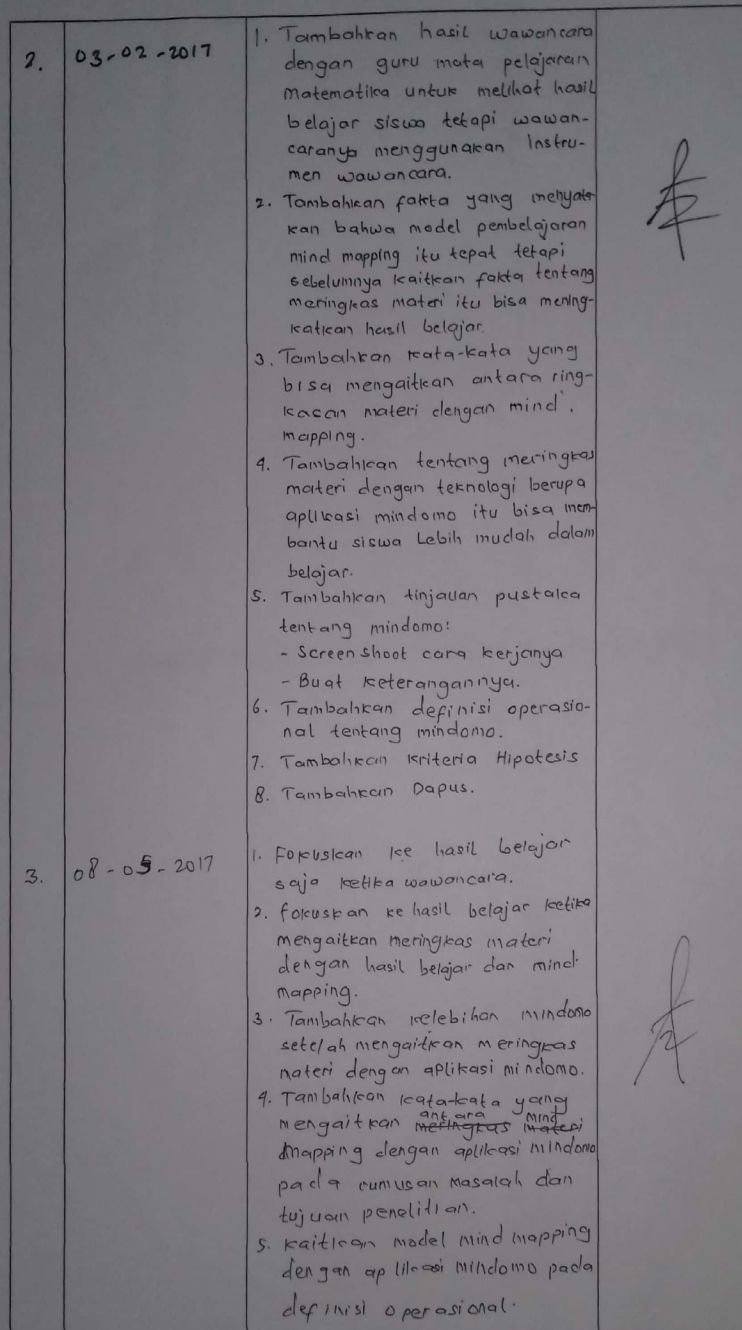 2. 03-02-2017
1. Tambahkan hasil wawancara
dengan guru mata pelajaran
matematika untuk melihat hasil
belajar siswa tetapi wawan-
caranya menggunakan Instru-
men wawancara.
2. Tambahkan fakta yang menyata
kan bahwa model pembelajaran
mind mapping itu tepat tetapi
sebelumnya kaitkan fakta tentang
meringkas materi itu bisa mening-
katkan hasil belajar.
3. Tambahkan kata-kata yang
bisa mengaitkan antara ring-
kasan materi dengan mind
mapping.
4. Tambahkan tentang meringkas
materi dengan teknologi berupa
aplikasi mindomo itu bisa mem-
bantu siswa Lebih mudah dalam
belajar.
5. Tambahkan tinjauan pustaka
tentang mindomo:
- Screen shoot cara kerjanya
- Buat keterangannya.
6. Tambahkan definisi operasio-
nal tentang mindomo.
7. Tambahkan Kriteria Hipotesis
8. Tambahkan Dapus.
3. 08-05-2017
1. Fokuskan ke hasil belajar
saja ketika wawancara.
2. fokuskan ke hasil belajar ketika
mengaitkan meringkas materi
dengan hasil belajar dan mind
mapping.
3. Tambahkan kelebihan mindomo
setelah mengaitkan meringkas
materi dengan aplikasi mindomo.
4. Tambahkan kata-kata yang
mengaitkan antara mind
meringkas materi
mapping dengan aplikasi mindomo
pada rumusan masalah dan
tujuan penelitian.
5. kaitkan model mind mapping
dengan aplikasi mindomo pada
definisi operasional.